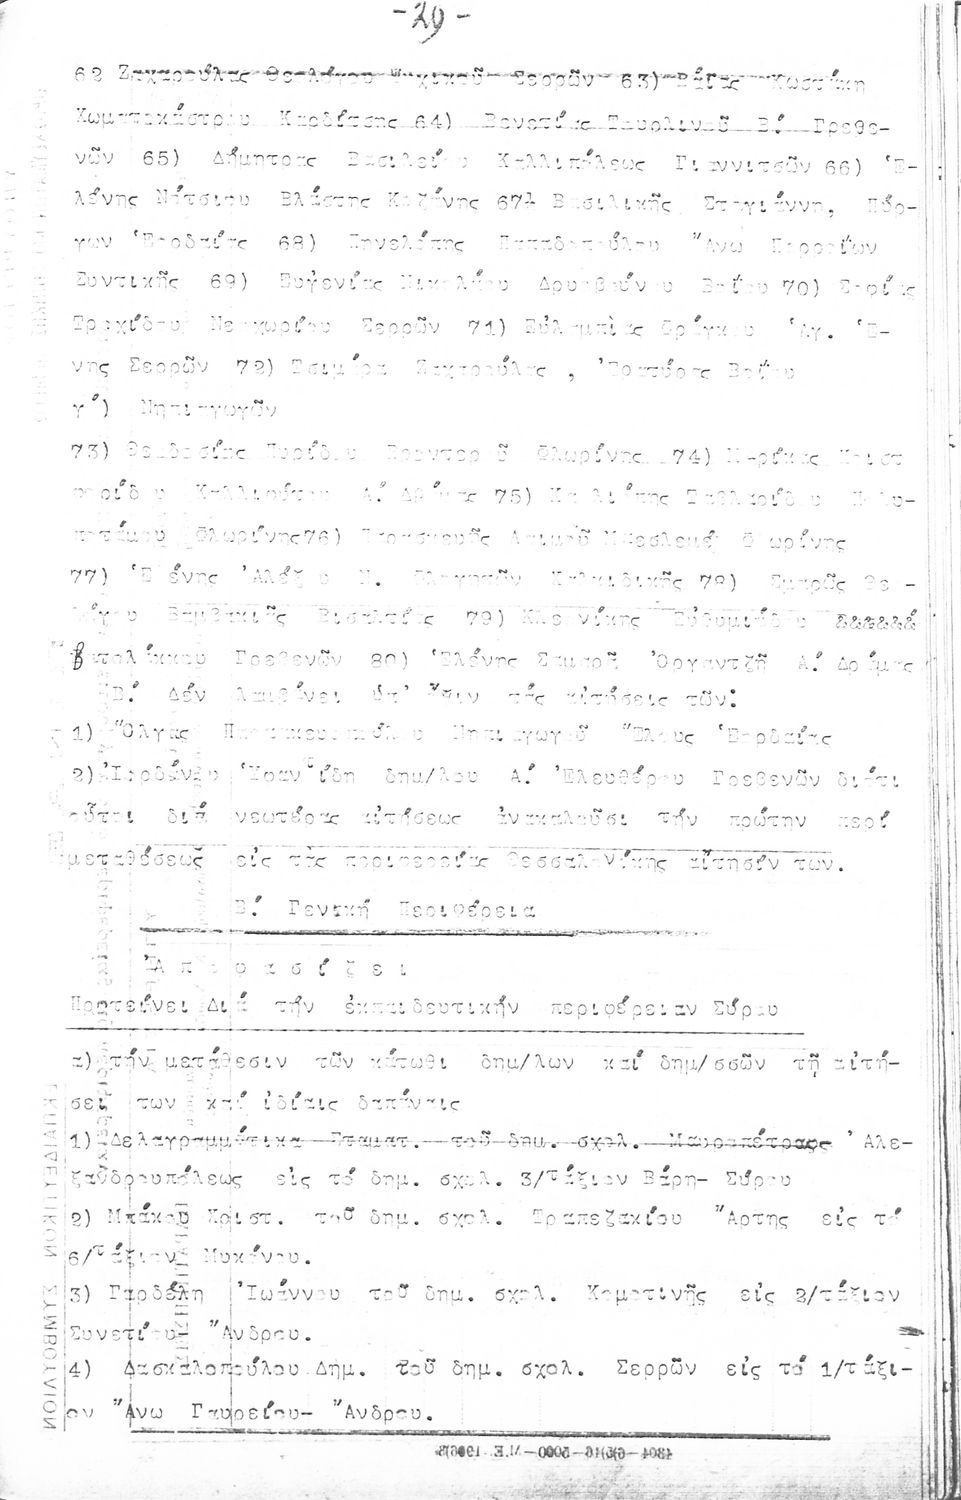 -29-
62 Ζαχαρούλας Θεολόγου Ψυχικοῦ Σερρῶν 63) Βάϊας Κωστάκη
Κωματοκάστρου Καρδίτσης 64) Βενετίας Ταυρλινοῦ Β.΄ Γρεβε-
νῶν 65) Δήμητρας Βασιλείου Καλλιπόλεως Γιαννιτσῶν 66) Ἑ-
λένης Νάτσιου Βλάστης Κοζάνης 67) Βασιλικῆς Στογιάννη, Πύρ-
γων Ἐορδαίας 68) Πηνελόπης Παπαδοπούλου Ἄνω Πορροΐων
Συντικῆς 69) Εὐγενίας Νικολάου Δρυοβούνου Βοΐου 70) Σοφίας
Τροχίδου Νεοχωρίου Σερρῶν 71) Εὐλαμπίας Φράγκου Ἁγ. Ἑ-
νης Σερρῶν 72) Τσιμάρα Ζαχαρούλας , Ἐρατύρας Βοΐου
γ΄) Νηπιαγωγῶν
73) Θεοδοσίας Πυρίδου Φλωρίνης 74) Μαρίκας Χριστ
φορίδου Καλλιφύτου Α.΄ Δράμας 75) Καλλιόπης Πολυ-
ποτάμου Φλωρίνης 76) Παρασκευῆς Φλωρίνης
77) Ἑλένης Ἀλέξ υ Ν. Χαλκιδικῆς 78) Σμαρῶς Θε -
λόγου Βαμβακιᾶς Βισαλτίας 79) Κλεονίκης Εὐθυμιάδου &&&&&&
βατολάκκου Γρεβενῶν 80) Ἑλένης Σαμαρᾶ Ὀργαντζῆ Α.΄ Δράμας
Β.΄ Δέν λαμβάνει ὑπ' ὄψιν τάς αἰτήσεις τῶν:
1) Ὄλγας Παρασκευοπούλου Νηπιαγωγοῦ Ἕλους Ἐορδαίας
2) Ἰορδάνου Ὑφαντίδη δημ/λου Α.΄ Ἐλευθέρου Γρεβενῶν διότι
οὗτοι διά νεωτέρας αἰτήσεως ἀνακαλοῦσι τήν πρώτην περί
μεταθέσεως εἰς τάς περιφερείας Θεσσαλονίκης αἴτησίν των.
Β.΄ Γενική Περιφέρεια
Ἀ π ο φ α σ ί ζ ε ι
Προτείνει Διά τήν ἐκπαιδευτικήν περιφέρειαν Σύρου
α) τήν μετάθεσιν τῶν κάτωθι δημ/λων καί δημ/σσῶν τῇ αἰτή-
σει των καί ἰδίαις δαπάναις
1) Δελαγραμμάτικα Σταματ. τοῦ δημ. σχολ. Μαυροπέτρας Ἀλε-
ξανδρουπόλεως εἰς τό δημ. σχολ. 3/τάξιον Βάρη- Σύρου
2) Μπάκου Χριστ. τοῦ δημ. σχολ. Τραπεζακίου Ἄρτης εἰς τό
6/τάξιον Μυκόνου.
3) Γαρδέλη Ἰωάννου τοῦ δημ. σχολ. Κομοτινῆς εἰς 2/τάξιον
Συνετίου- Ἄνδρου.
4) Δασκαλοπούλου Δημ. τοῦ δημ. σχολ. Σερρῶν εἰς τό 1/τάξι-
ον Ἄνω Γαυρείου- Ἄνδρου.